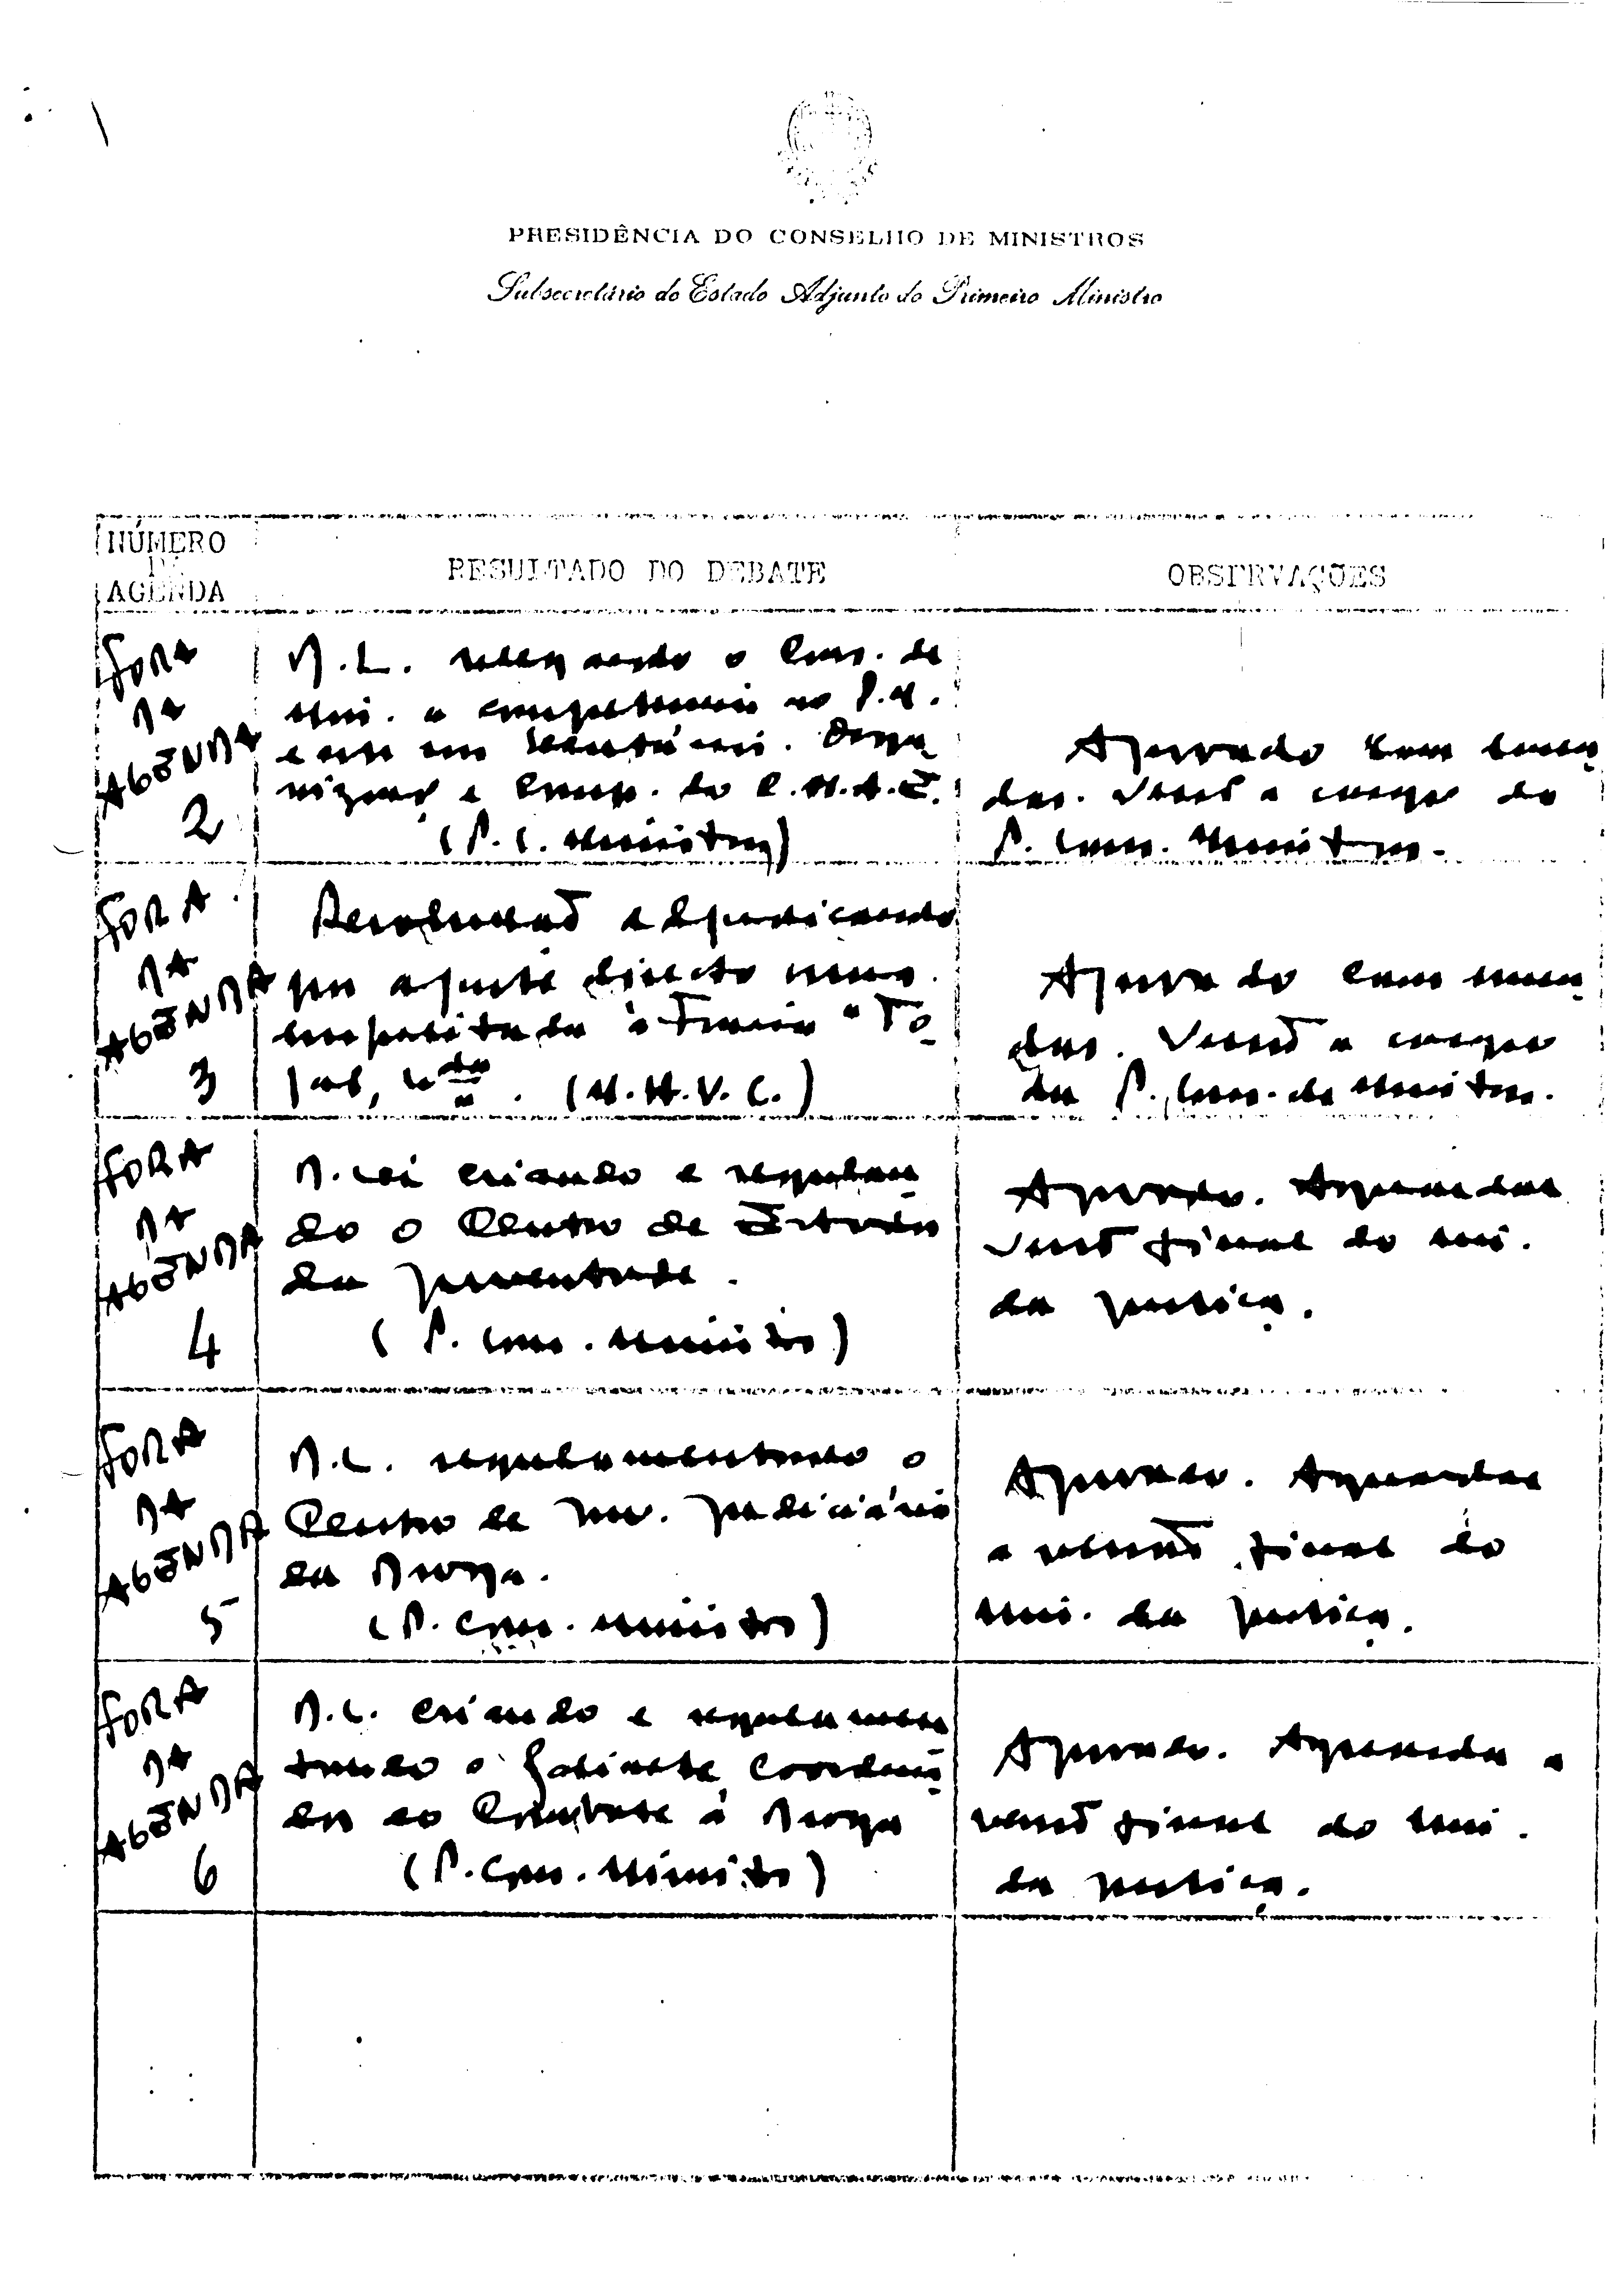 PRESIDÊNCIA DO CONSELHO DE MINISTROS
Subsecretário de Estado Adjunto do Primeiro Ministro
NÚMERO
DA
AGENDA
RESULTADO DO DEBATE
OBSERVAÇÕES
FORA
DA
AGENDA
2
D.L. o Cons. de
Min. a competencia
(P. C. Ministros)
Aprovado com emen
das. Versão a cargo da
P. Cons. Ministros.
FORA
DA
AGENDA
3
Resolução adjudicando
por ajuste directo uma
empreitada à Firma
(M.H.V.C.)
Aprovado com emen
das. Versão a cargo
da P. Cons. de Ministros.
FORA
DA
AGENDA
4
D. Lei criando e regulan
do o Centro de Estudos
da Juventude.
(P. Cons. Ministros)
Aprovado. Aguardar
versão final do Min.
da Justiça.
FORA
DA
AGENDA
5
D.L. regulamentando o
Centro de Inv. Judiciária
da Droga.
(P. Cons. Ministros)
Aprovado. Aguardar
a versão final do
Min. da Justiça.
FORA
DA
AGENDA
6
D.L. criando e regulamen
tando o Gabinete Coordena
dor do Combate à Droga
(P. Cons. Ministros)
Aprovado. Aguarda a
versão final do Min.
da Justiça.